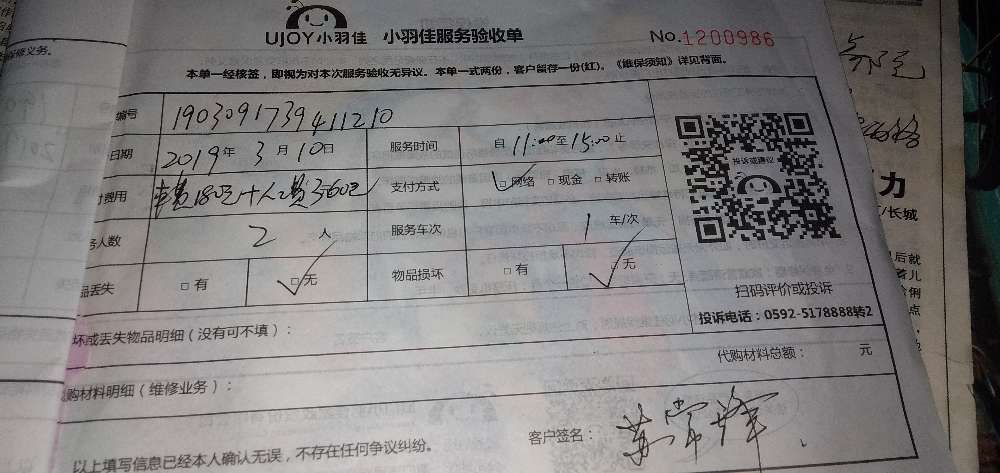 UJOY小羽佳 小羽佳服务验收单 No.1200986
本单一经核签，即视为对本次服务验收无异议。本单一式两份，客户留存一份(红)。《维保须知》详见背面。
编号 1903091739411210
日期 2019年3月10日 服务时间 自11:00至15:00止
费用 车费180元+人工费360元 支付方式 □网络 □现金 □转账
务人数 2人 服务车次 1车/次
品丢失 □有 □无 物品损坏 □有 □无
投诉或建议
扫码评价或投诉
投诉电话：0592-5178888转2
坏或丢失物品明细（没有可不填）：
代购材料总额： 元
购材料明细（维修业务）：
客户签名：
以上填写信息已经本人确认无误，不存在任何争议纠纷。
修义务。
力
/长城